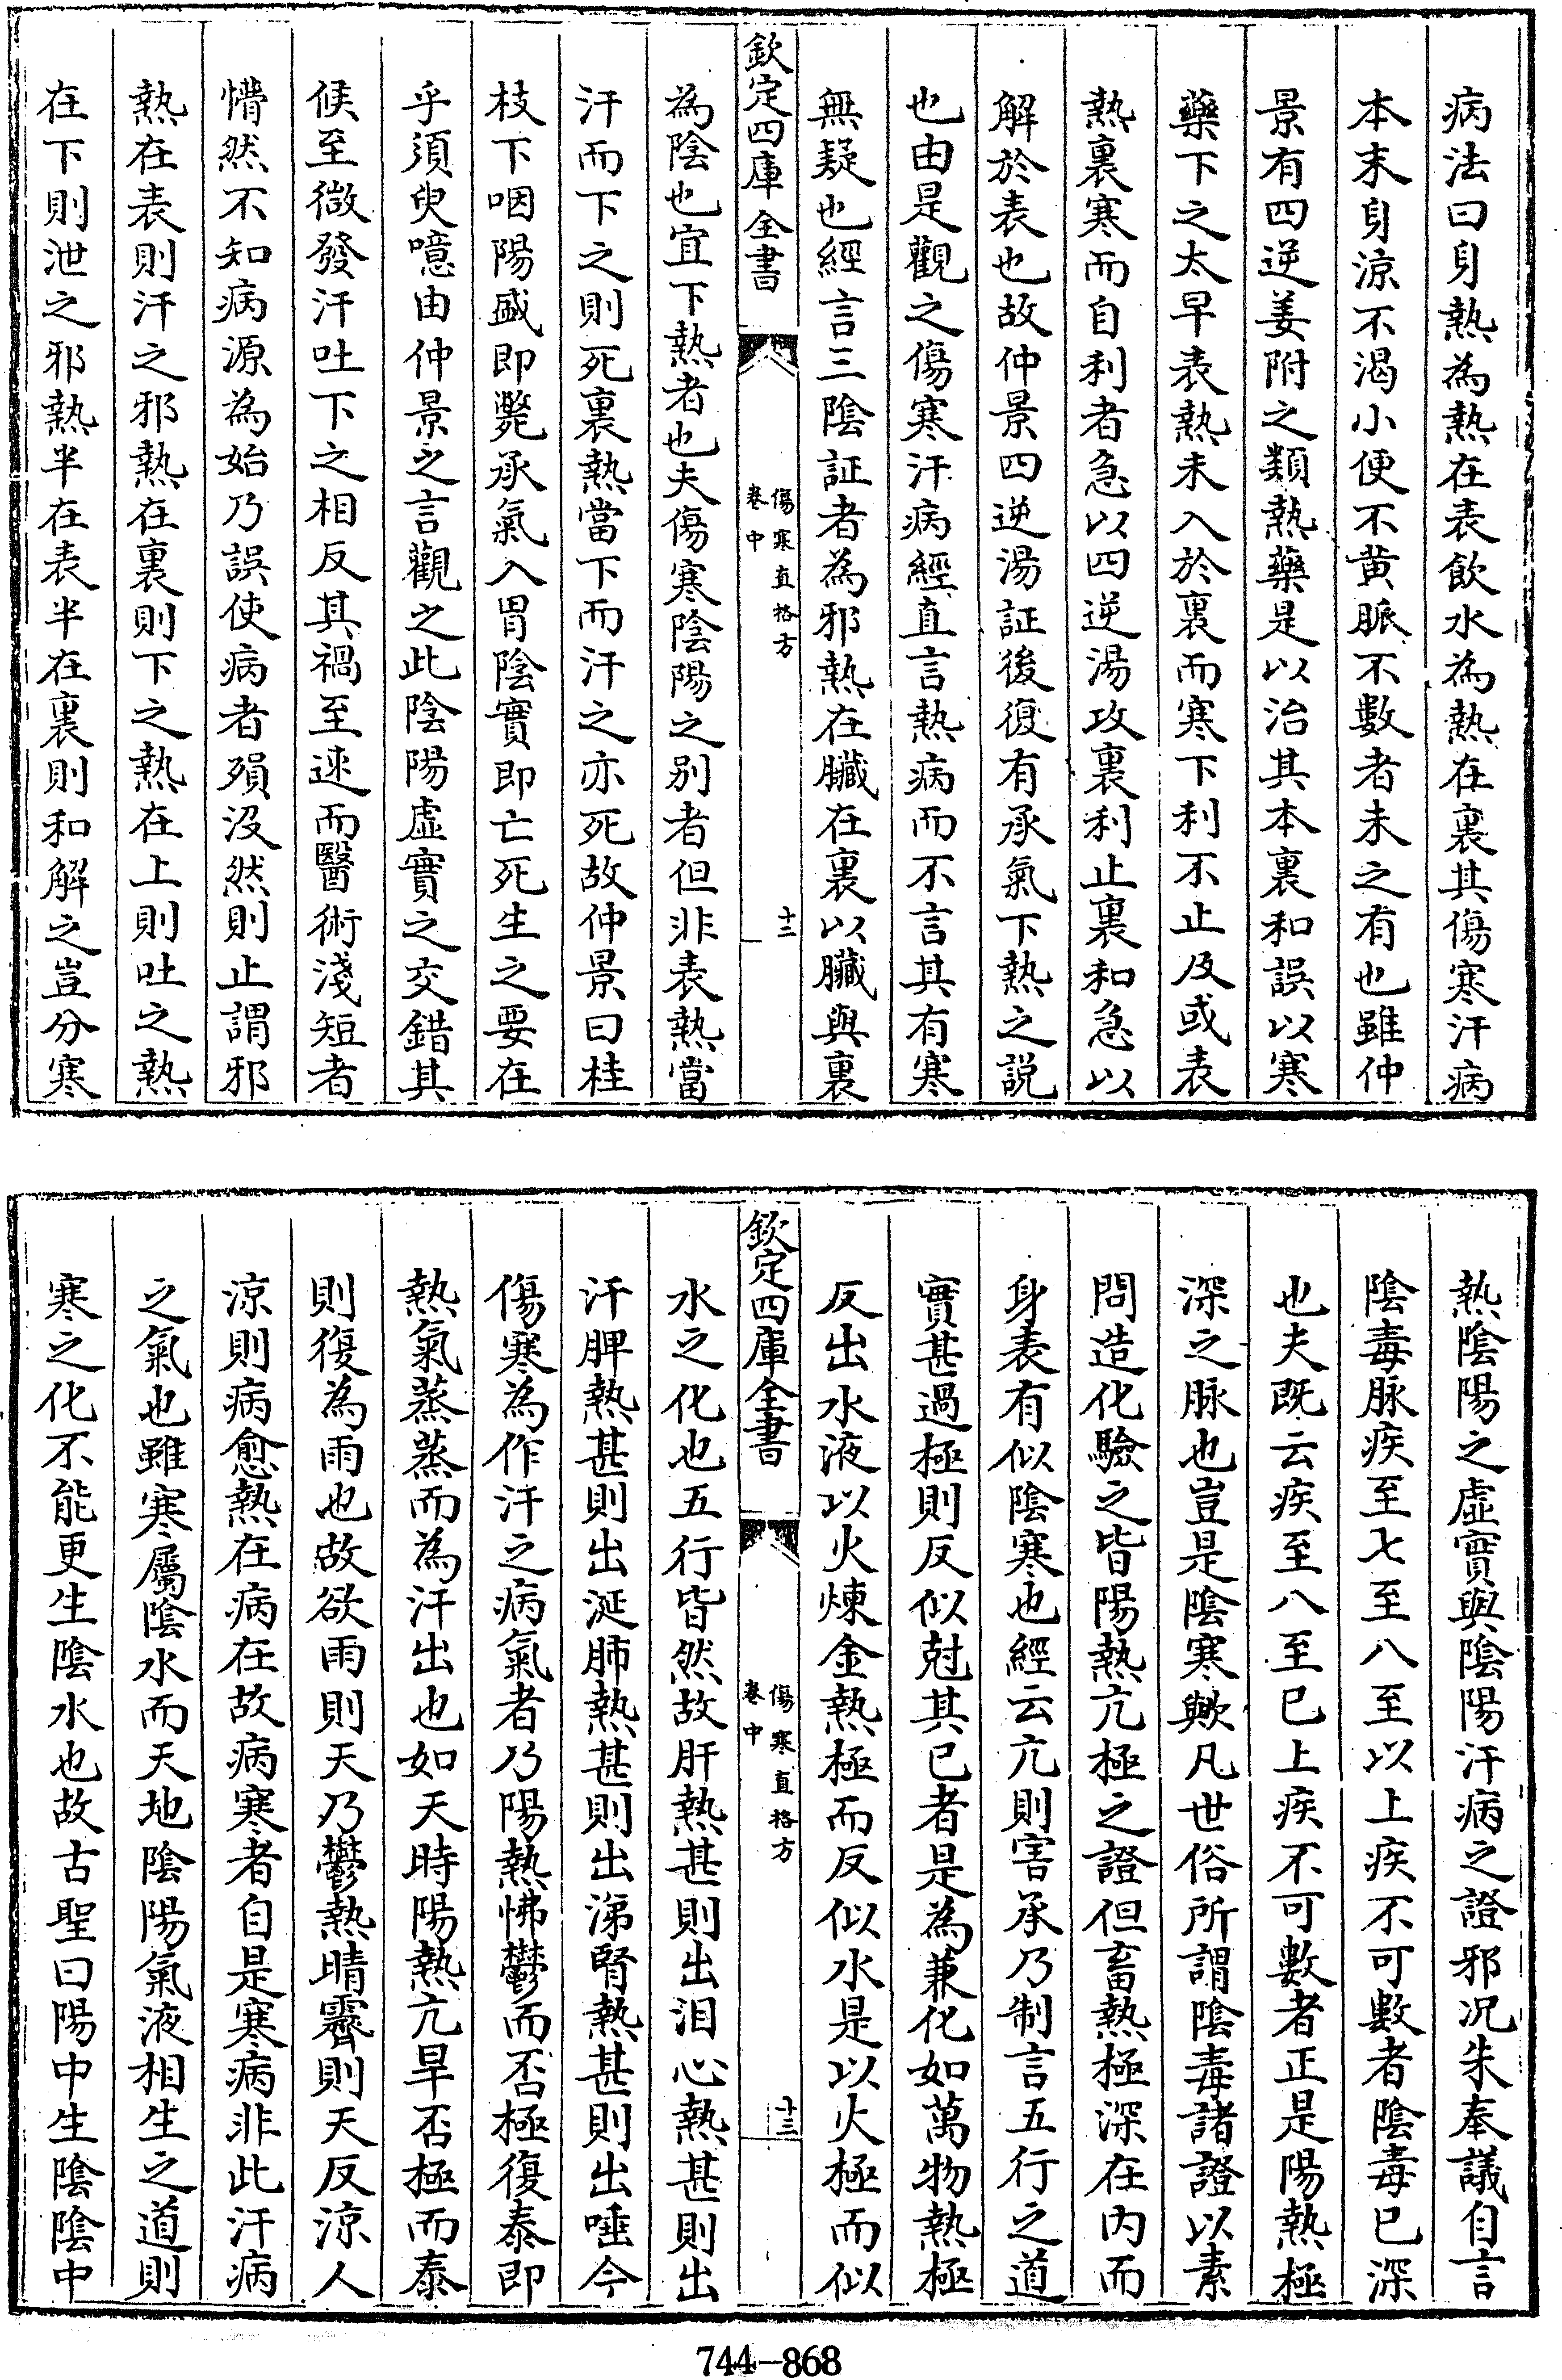 病法曰身熱為熱在表飲水為熱在裏其傷寒汗病
本末身涼不渴小便不黄脈不數者未之有也雖仲
景有四逆姜附之類熱藥是以治其本裏和誤以寒
藥下之太早表熱未入於裏而寒下利不止及或表
熱裏寒而自利者急以四逆湯攻裏利止裏和急以
解於表也故仲景四逆湯証後復有承氣下熱之説
也由是觀之傷寒汗病經直言熱病而不言其有寒
無疑也經言三陰証者為邪熱在臓在裏以臓與裏
欽定四庫全書
傷寒直格方
卷中
十三
為陰也宜下熱者也夫傷寒陰陽之别者但非表熱當
汗而下之則死裏熱當下而汗之亦死故仲景曰桂
枝下咽陽盛即斃承氣入胃陰實即亡死生之要在
乎須臾噫由仲景之言觀之此陰陽虛實之交錯其
候至微發汗吐下之相反其禍至速而醫術淺短者
懵然不知病源為始乃誤使病者殞沒然則止謂邪
熱在表則汗之邪熱在裏則下之熱在上則吐之熱
在下則泄之邪熱半在表半在裏則和解之豈分寒
熱陰陽之虛實與陰陽汗病之證邪况朱奉議自言
陰毒脉疾至七至八至以上疾不可數者陰毒已深
也夫既云疾至八至已上疾不可數者正是陽熱極
深之脉也豈是陰寒歟凡世俗所謂陰毒諸證以素
問造化驗之皆陽熱亢極之證但畜熱極深在内而
身表有似陰寒也經云亢則害承乃制言五行之道
實甚過極則反似尅其已者是為兼化如萬物熱極
反出水液以火煉金熱極而反似水是以火極而似
欽定四庫全書
傷寒直格方
卷中
十三
水之化也五行皆然故肝熱甚則出泪心熱甚則出
汗脾熱甚則出涎肺熱甚則出涕腎熱甚則出唾今
傷寒為作汗之病氣者乃陽熱怫鬱而否極復泰即
熱氣蒸蒸而為汗出也如天時陽熱亢旱否極而泰
則復為雨也故欲雨則天乃鬱熱晴霽則天反涼人
涼則病愈熱在病在故病寒者自是寒病非此汗病
之氣也雖寒屬陰水而天地陰陽氣液相生之道則
寒之化不能更生陰水也故古聖曰陽中生陰陰中
744–868